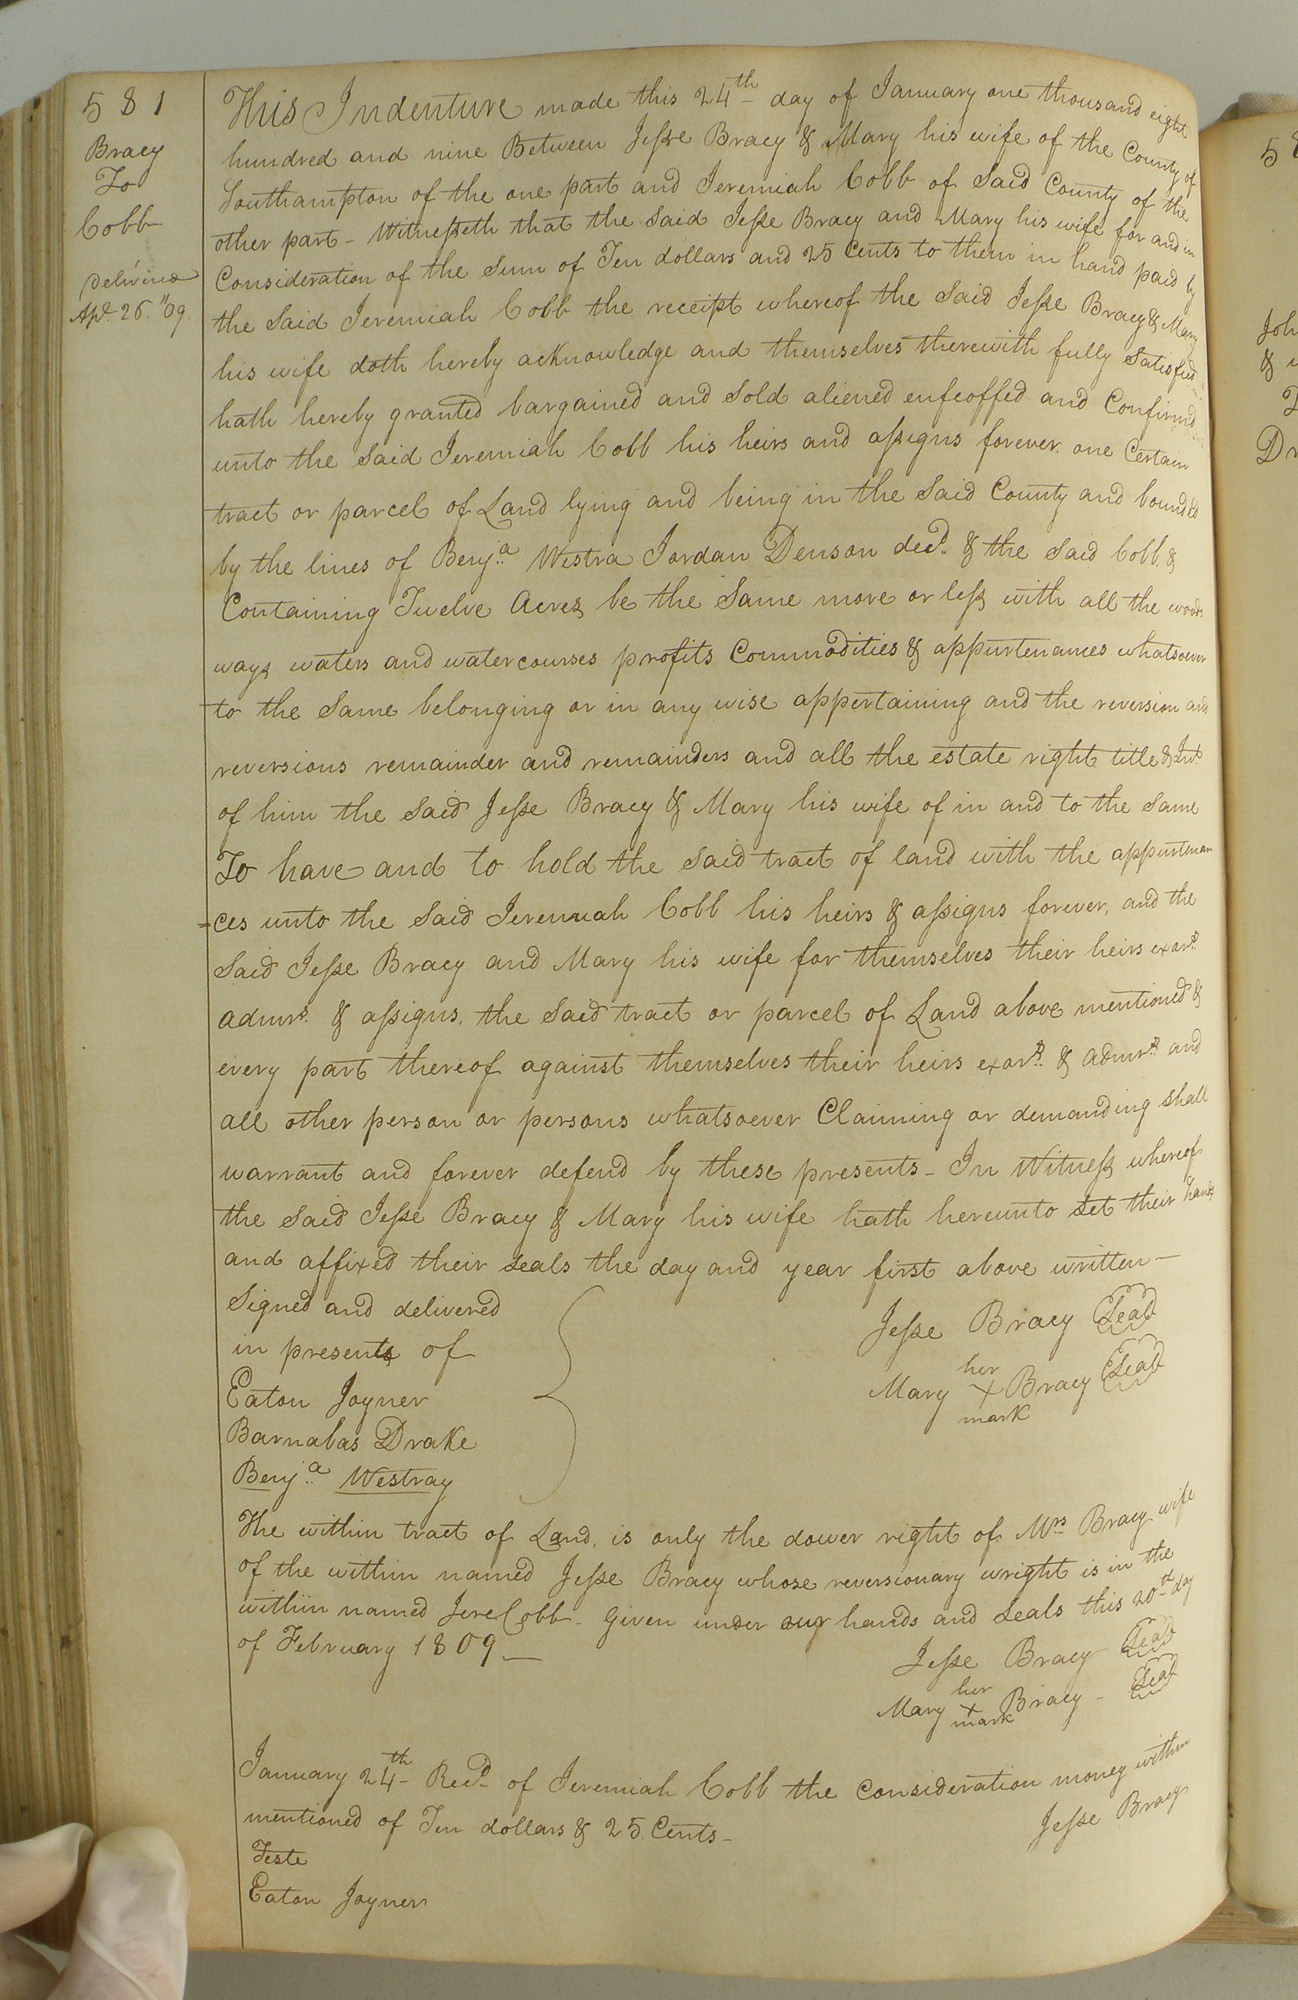 581
Bracy
To
Cobb
Delivered
Apl. 26. "09.
This Indenture made this 24th day of January one thousand eight
hundred and nine Between Jesse Bracy & Mary his wife of the County of
Southampton of the one part and Jeremiah Cobb of Said County of the
other part - Witnesseth that the Said Jesse Bracy and Mary his wife for and in
Consideration of the Sum of Ten dollars and 25 Cents to them in hand paid by
the Said Jeremiah Cobb the receipt whereof the Said Jesse Bracy & Mary
his wife doth hereby acknowledge and themselves therewith fully Satisfied
hath hereby granted bargained and Sold aliened enfeoffed and Confirmd
unto the Said Jeremiah Cobb his heirs and assigns forever. one Certain
tract or parcel of Land lying and being in the Said County and bounded
by the lines of Benja. Westra Jordan Denson decd. & the Said Cobb. &
Containing Twelve Acres be the Same more or less with all the woods
ways waters and watercourses profits Commodities & appurtenances whatsoever
to the Same belonging or in any wise appertaining and the reversion and
reversions remainder and remainders and all the estate right title & Int.
of him the Said Jesse Bracy & Mary his wife of in and to the Same
To have and to hold the Said tract of land with the appurtenan
=ces unto the Said Jeremiah Cobb his heirs & assigns forever, and the
Said Jesse Bracy and Mary his wife for themselves their heirs exors.
admrs. & assigns, the Said tract or parcel of Land above mentioned &
every part thereof against themselves their heirs exors. & admrs. and
all other person or persons whatsoever Claiming or demanding shall
warrant and forever defend by these presents - In Witness whereof
the Said Jesse Bracy & Mary his wife hath hereunto Set their hands
and affixed their Seals the day and year first above written -
Signed and delivered
in presents of
Eaton Joyner
Barnabas Drake
Benja. Westray
Jesse Bracy Seal
her
Mary X Bracy Seal
mark
The within tract of Land, is only the dower right of Mrs Bracy wife
of the within named Jesse Bracy whose reversionary wright is in the
within named Jere Cobb - Given under our hands and Seals this 20th day
of February 1809 -
Jesse Bracy Seal
her
Mary X Bracy - Seal
mark
January 24th - Recd. of Jeremiah Cobb the Consideration money within
mentioned of Ten dollars & 25 Cents -
Jesse Bracy
Teste
Eaton Joyner
58
Joh
&
Dr